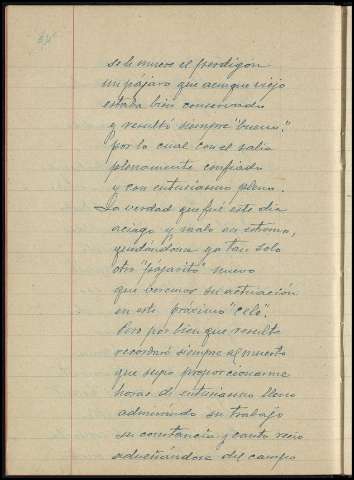 se le muere el perdigón
un pájaro que aunque viejo
estaba bien conservado
y resultó siempre "bueno".
por lo cual con el salía
plenamente confiado
y con entusiasmo pleno.
La verdad que fué este día
aciago y malo en extremo,
quedándome ya tan solo
otro "pájarito" nuevo
que veremos su actuación
en este próximo "celo".
Pero por bien que resulte
recordaré siempre al muerto
que supo proporcionarme
horas de entusiasmo lleno
admirando su trabajo
su constancia y canto recio
adueñándose del campo